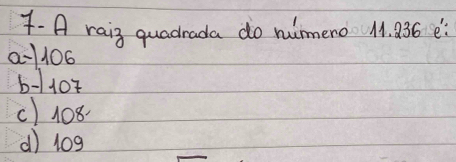 7- A raiz quadrada do número 11.236 é:
a-) 106
b-) 107
c) 108
d) 109